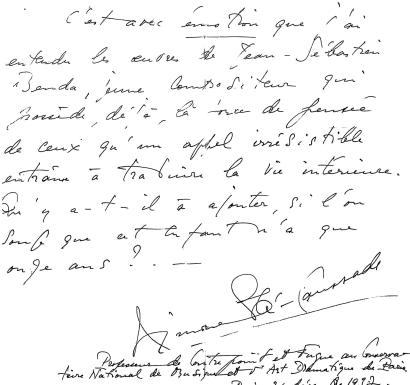 C'est avec émotion que j'ai
entendu les œuvres de Jean-Sébastien
Benda, jeune compositeur qui
possède, déjà, la force de pensée
de ceux qu'un appel irrésistible
entraîne à traduire la vie intérieure.
Qu'y a-t-il à ajouter, si l'on
songe que cet enfant n'a que
onze ans ? . . —
Simone Plé-Caussade
Professeur de Contrepoint et Fugue au Conserva-
toire National de Musique et d'Art Dramatique de Paris
Paris